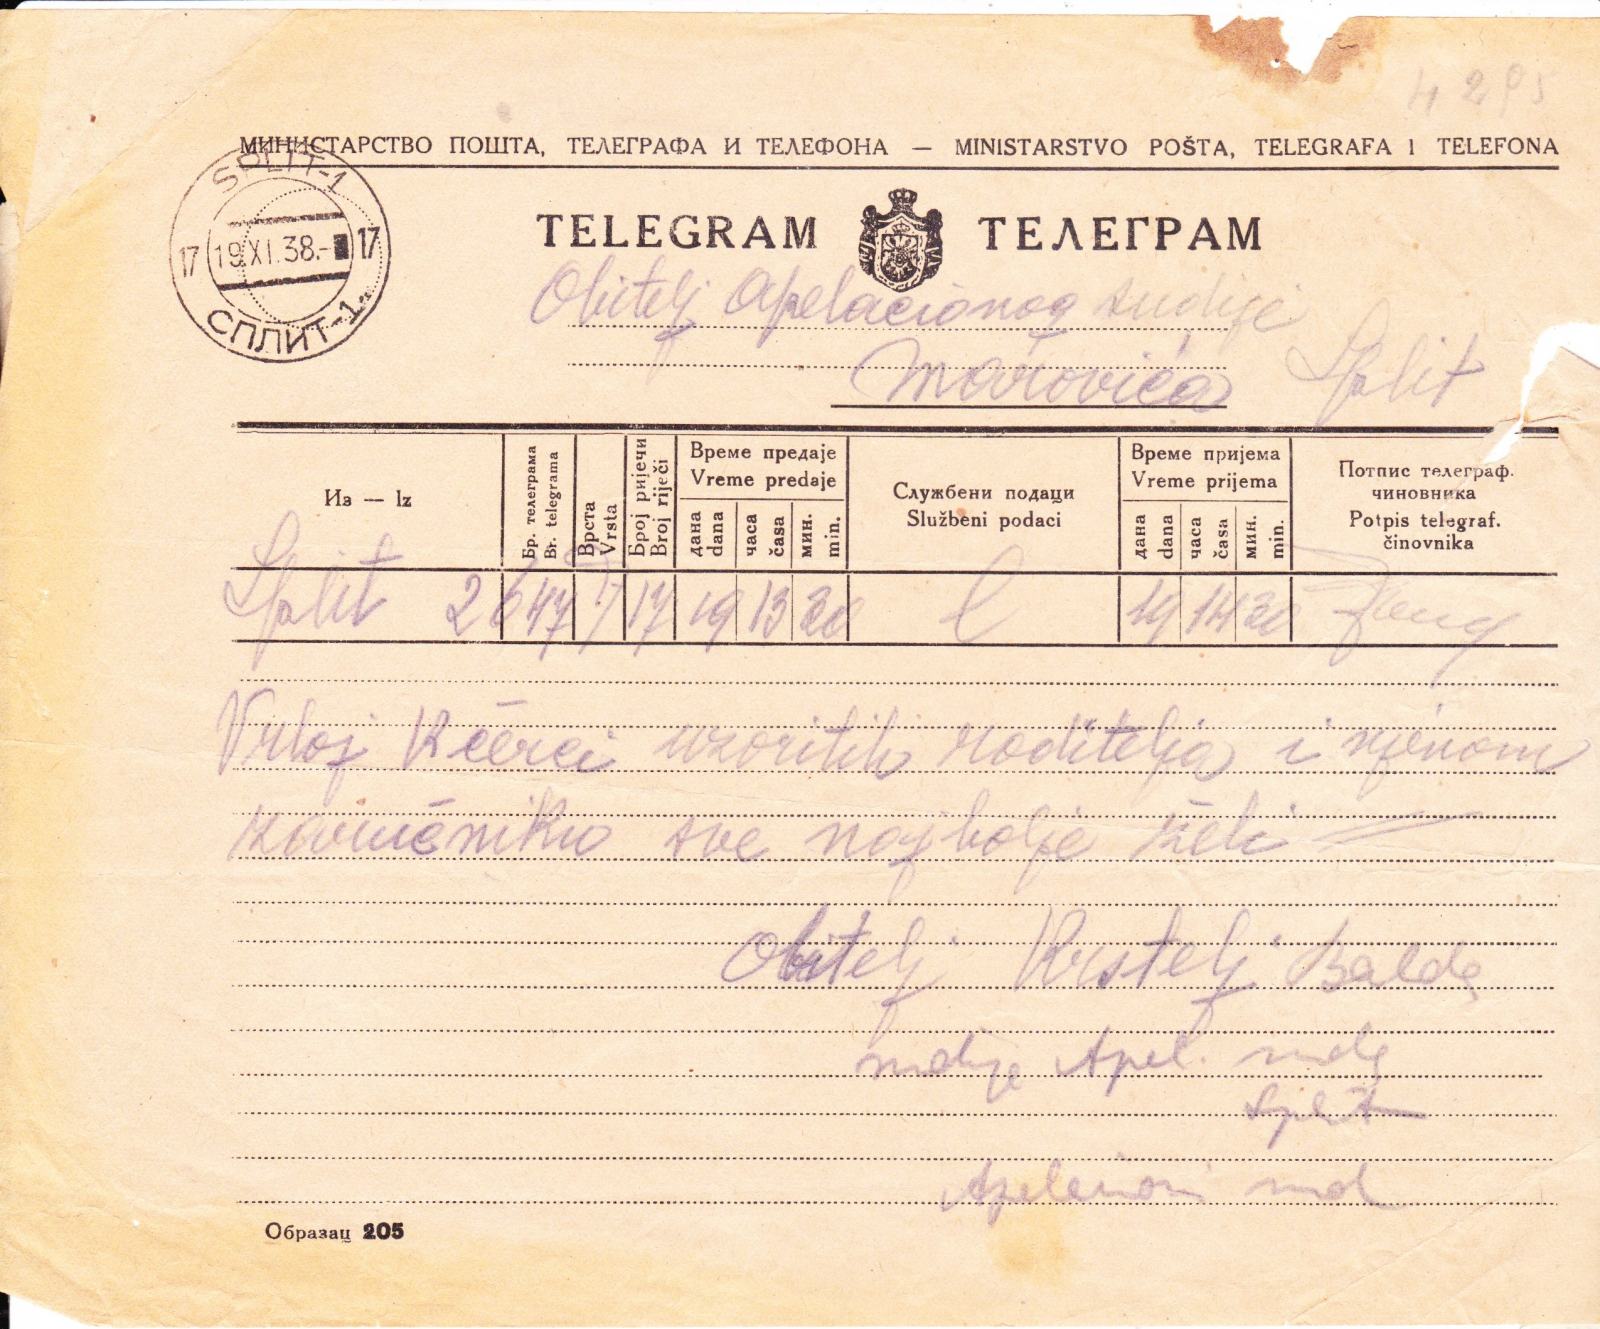 4295
МИНИСТАРСТВО ПОШТА, ТЕЛЕГРАФА И ТЕЛЕФОНА — MINISTARSTVO POŠTA, TELEGRAFA I TELEFONA
SPLIT-1
17 19.XI.38.- 17
СПЛИТ-1
TELEGRAM ТЕЛЕГРАМ
Obitelj Apelacionog sudije
Marovića Split
Из — Iz
Бр. телеграма
Br. telegrama
Врста
Vrsta
Број ријечи
Broj riječi
Време предаје
Vreme predaje
дана
dana
часа
časa
мин.
min.
Службени подаци
Službeni podaci
Време пријема
Vreme prijema
дана
dana
часа
časa
мин.
min.
Потпис телеграф.
чиновника
Potpis telegraf.
činovnika
Split 2647 17 19 13 20 19 14 30
Vrloj kćerci uzoritih roditelja i njenom
zaručniku sve najbolje želi
Obitelj Krstelj Balda
sudije Apel. suda
Split
Apelacioni sud
Образац 205